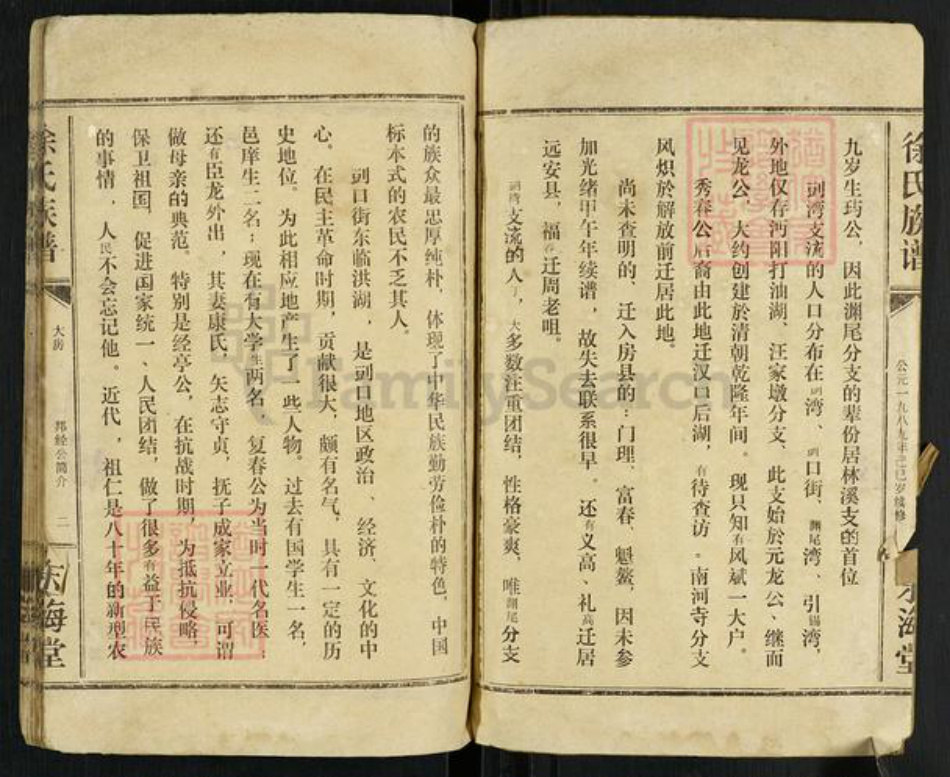 徐氏族谱
公元一九八九年己巳岁续修
东海堂
九岁生玙公，因此渊尾分支的辈份居林溪支的首位
剅湾支流的人口分布在剅湾、剅口街、渊尾湾、引锡湾，
外地仅存沔阳打油湖、汪家墩分支、此支始於元龙公、继面
见龙公，大约创建於清朝乾隆年间。现只知有风斌一大户。
秀春公后裔由此地迁汉口后湖，有待查访。南河寺分支
风炽於解放前迁居此地。
尚未查明的、迁入房县的：门理、富春、魁鳌，因未参
加光绪甲午年续谱，故失去联系很早。还有义高、礼高迁居
远安县，福春迁周老咀。
剅湾支流的人丁，大多数注重团结，性格豪爽，唯渊尾分支
的族众最忠厚纯朴，体现了中华民族勤劳俭朴的特色，中国
标本式的农民不乏其人。
剅口街东临洪湖，是剅口地区政治、经济、文化的中
心。在民主革命时期，贡献很大，颇有名气，具有一定的历
史地位。为此相应地产生了一些人物。过去有国学生一名，
邑庠生二名；现在有大学生两名，复春公为当时一代名医；
还有臣龙外出，其妻康氏，矢志守贞，抚子成家立业，可谓
做母亲的典范。特别是经亭公，在抗战时期，为抵抗侵略，
保卫祖国，促进国家统一、人民团结，做了很多有益于民族
的事情，人民不会忘记他。近代，祖仁是八十年的新型农
徐氏族谱
大房
邦经公简介
二
东海堂
FamilySearch